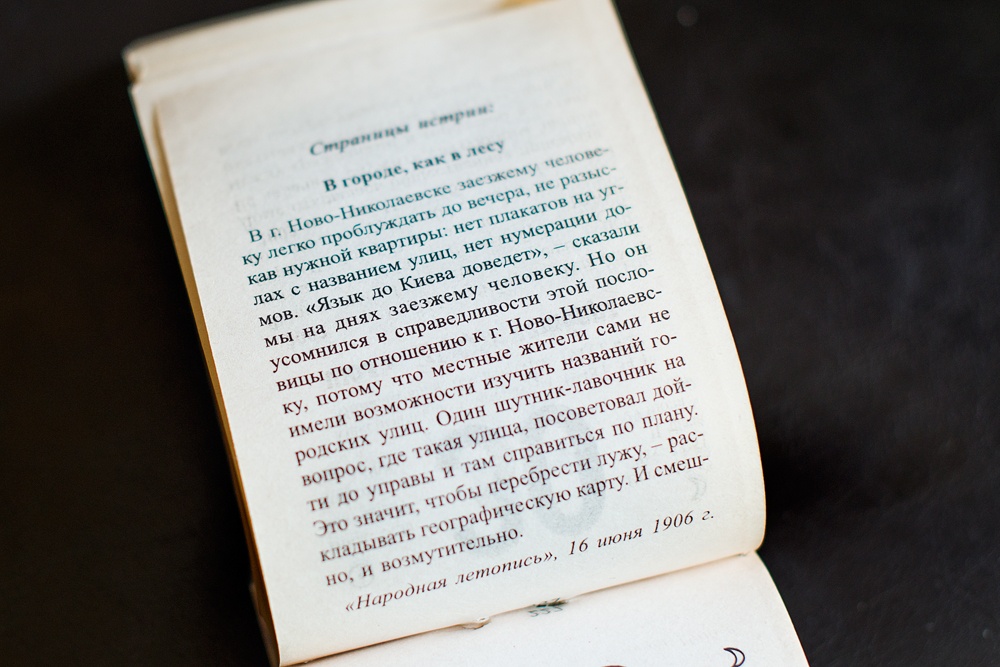 Страницы истрии:
В городе, как в лесу
В г. Ново-Николаевске заезжему челове-
ку легко проблуждать до вечера, не разыс-
кав нужной квартиры: нет плакатов на уг-
лах с названием улиц, нет нумерации до-
мов. «Язык до Киева доведет», – сказали
мы на днях заезжему человеку. Но он
усомнился в справедливости этой посло-
вицы по отношению к г. Ново-Николаевс-
ку, потому что местные жители сами не
имели возможности изучить названий го-
родских улиц. Один шутник-лавочник на
вопрос, где такая улица, посоветовал дой-
ти до управы и там справиться по плану.
Это значит, чтобы перебрести лужу, – рас-
кладывать географическую карту. И смеш-
но, и возмутительно.
«Народная летопись», 16 июня 1906 г.